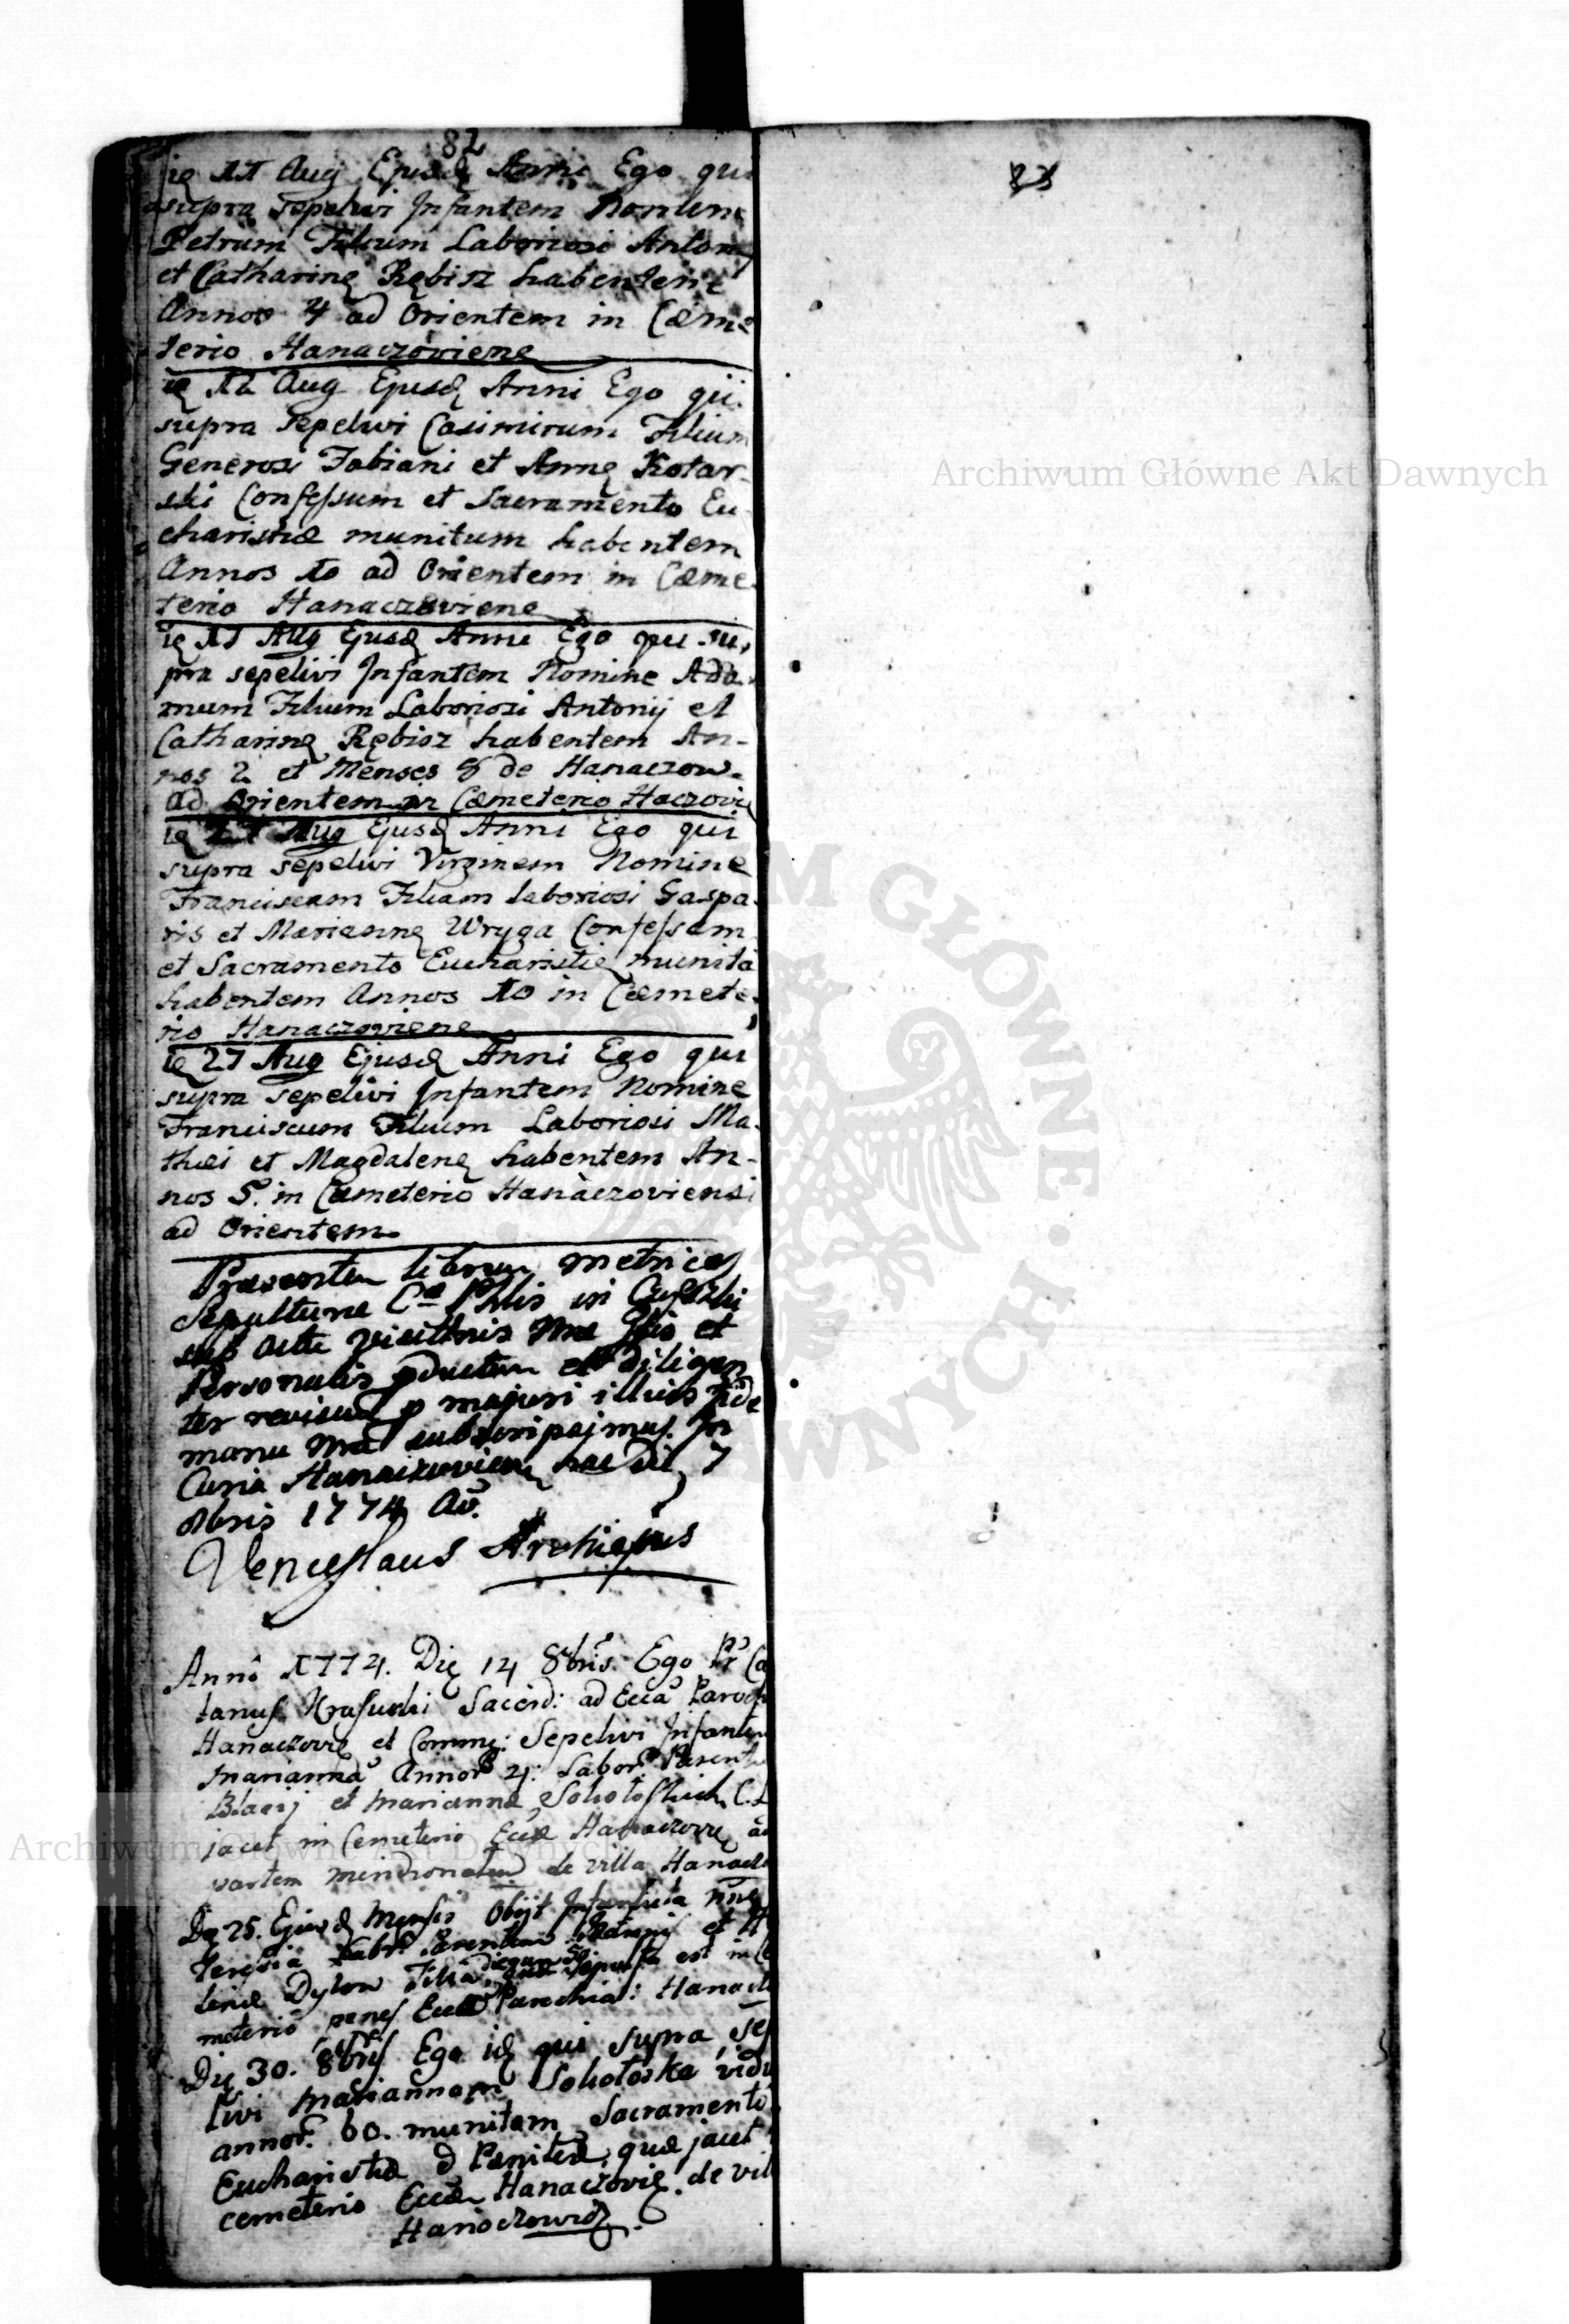 82
ie 11 Aug Ejusdę Anni Ego qui
supra sepelivi Infantem Nomine
Petrum Filium Laboriosi Antonij
et Catharinę Rębisz habentem
Annos 4 ad Orientem in Cæme
terio Hanaczoviene
ię 12 Aug Ejusdę Anni Ego qui
supra sepelivi Casimirum Filium
Generosi Fabiani et Annę Kotar-
ski Confessum et Sacramento Eu
charistiæ munitum habentem
Annos 10 ad Orientem in Cæme
terio Hanaczoviene
ię 17 Aug Ejusdę Anni Ego qui su,
pra sepelivi Infantem Nomine Ada
mum Filium Laboriosi Antonij et
Catharinę Rębisz habentem An-
nos 2 et Menses 8 de Hanaczow
ad Orientem in Cæmeterio Haczovie
ię Aug Ejusdę Anni Ego qui
supra sepelivi Virginem Nomine
Franciscam Filiam laboriosi Gaspa
ris et Mariannę Wryga Confessam
et Sacramento Eucharistię munitā
habentem Annos 10 in Cæmete
rio Hanaczoviene
ię 27 Aug Ejusdę Anni Ego qui
supra sepelivi Infantem Nomine
Franciscum Filium Laboriosi Ma
thæi et Magdalenę habentem An-
nos 5. in Cæmeterio Hanaczoviensi
ad Orientem
Præsentem librum metrices
Sepulturæ in
sub actu visitthnis Nræ Gglis et
Personalis pductum et diligen
ter revisum p majori illius fide
manu Nra subscripsimus. In
Curia Hanaczovien hac die 7
8bris 1774 Ao.
Venceslaus Archiepus
Anno 1774. Dię 14 8bris. Ego Pr Ca
tanus Krasuski Sacerd: ad Eccā Paroch
Hanaczovię et Commę: Sepelivi Infantem
Mariannā Annor 4: Labor Parent
Blasij et Mariannæ C.L
jacet in Cemeterio Eccæ Hanaczovię ad
partem meridionalem de villa Hanacz
Dię 25. Ejusdę Mensis Obijt Infantula nine
Teresia Labr: Parentum et
lenæ Dylow Filia, Sepulta est in Ce
meterio penes Eccā Parochia: Hanacz
Dię 30. 8bris Ego idę qui supra, sep
livi Mariannam Sokołoska vidu
annor. 60. munitam Sacramento
Eucharistiæ & Pænitæ, quæ jacet
cemeterio Eccæ Hanaczovię. de vil
Hanaczowię.
23
Archiwum Główne Akt Dawnych
Archiwum Główne Akt Dawnych